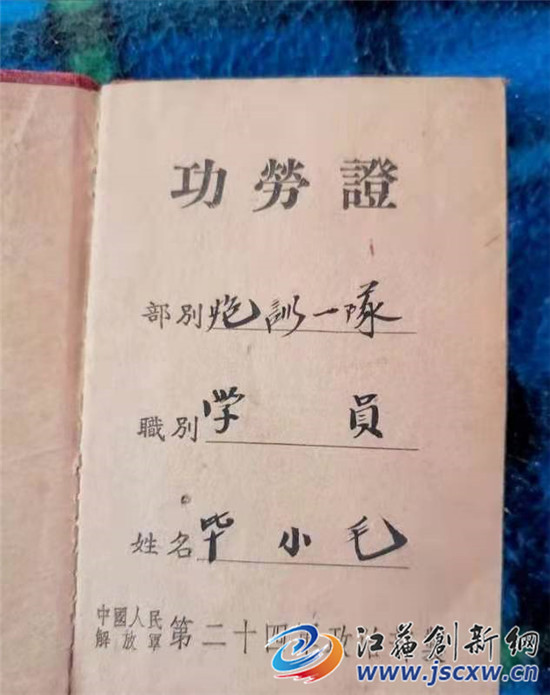 功勞證
部別 炮訓一隊
職別 学員
姓名 毕小毛
中國人民
解放軍 第二十四軍政治
江蘇創新網
www.jscxw.cn